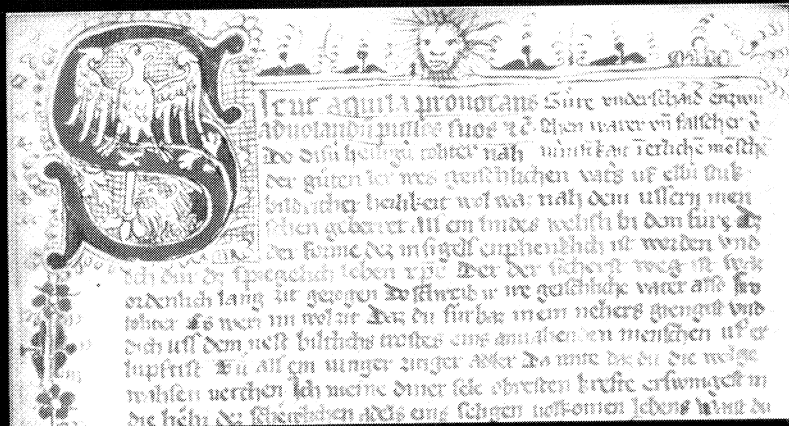 Sicut aquila provocans Gůte underschaid enzwi
ad volandū pullos suos ꝛ c̄ schen warer vñ falscher v̄
Do disú heiligú tohter nah nunftikait ī etliche mēsche
der gůten ler ires geischlichen vaters uf ellú stuk
bildricher heilikeit wol waz nah dem ussern men
schen geberret als ein lindes wehsli bi dem fúre dz
der forme dez insigels enphenklich ist worden vnd
sich dur dz spiegelich leben xpi der der sicherst weg ist
ordenlich lang zit gezogen do schreib ir ire geischliche vater also fro
tohter es wer nu wol zit daz du fúrbaz in ein nehers giengist vnd
dich uss dem nest biltliches trostes eins anvahenden menschen uf er
lupftist Tů als ein iunger adler Da mite die wolge
wahsen vetchen ich meine diner sele obresten krefte erswingest in
die hőhi dez schőwlichen adels eins seligen volkomen lebens Waist du